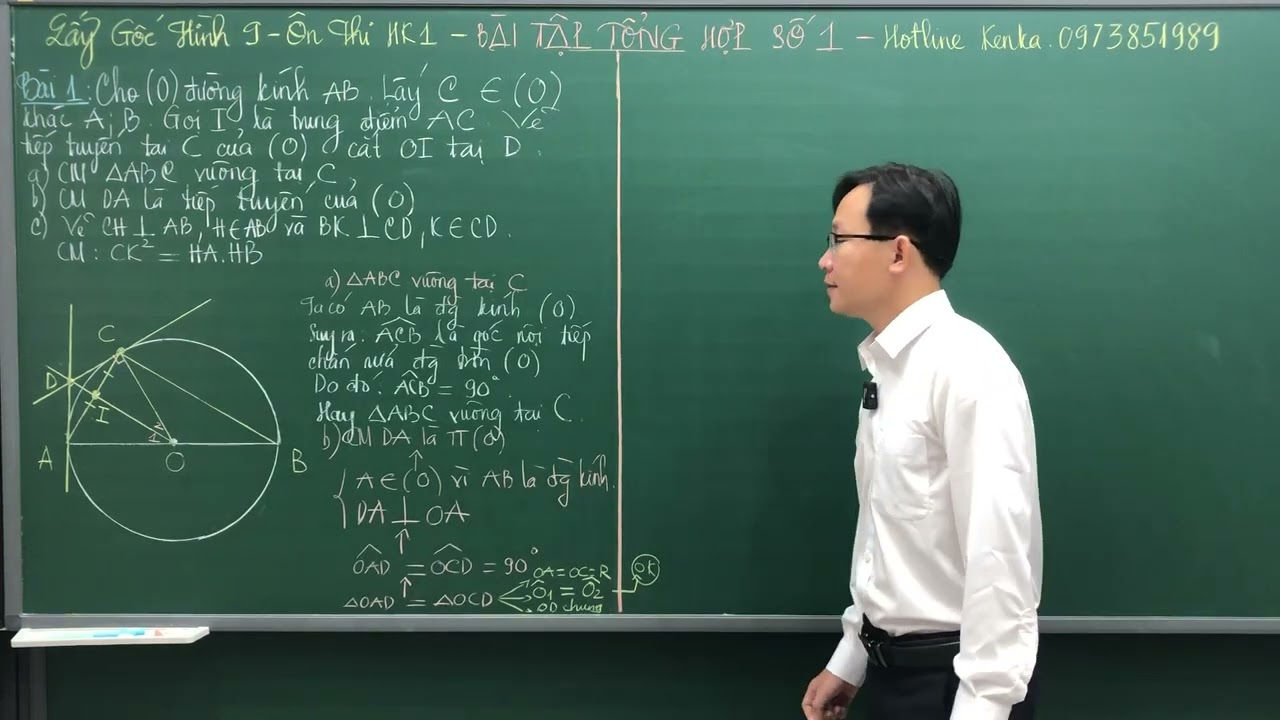 Lấy Gốc Hình 9 - Ôn Thi HK1 - BÀI TẬP TỔNG HỢP SỐ 1 - Hotline Kenka. 0973851989
Bài 1: Cho (O) đường kính AB. Lấy C ∈ (O)
khác A; B. Gọi I là trung điểm AC. Vẽ
tiếp tuyến tại C của (O) cắt OI tại D.
a) CM ΔABC vuông tại C.
b) CM DA là tiếp tuyến của (O)
c) Vẽ CH ⊥ AB, H∈AB và BK ⊥ CD, K∈CD.
CM: CK² = HA.HB
a) ΔABC vuông tại C
Ta có AB là đg kính (O)
Suy ra: ACB là góc nội tiếp
chắn nửa đg tròn (O)
Do đó: ACB = 90°
Hay ΔABC vuông tại C.
b) CM DA là TT (O)
A∈(O) vì AB là đg kính.
DA ⊥ OA
OAD = OCD = 90°
ΔOAD = ΔOCD
OA = OC = R
Ô1 = Ô2
OD chung
OK
C
D
I
A
1 2
O
B